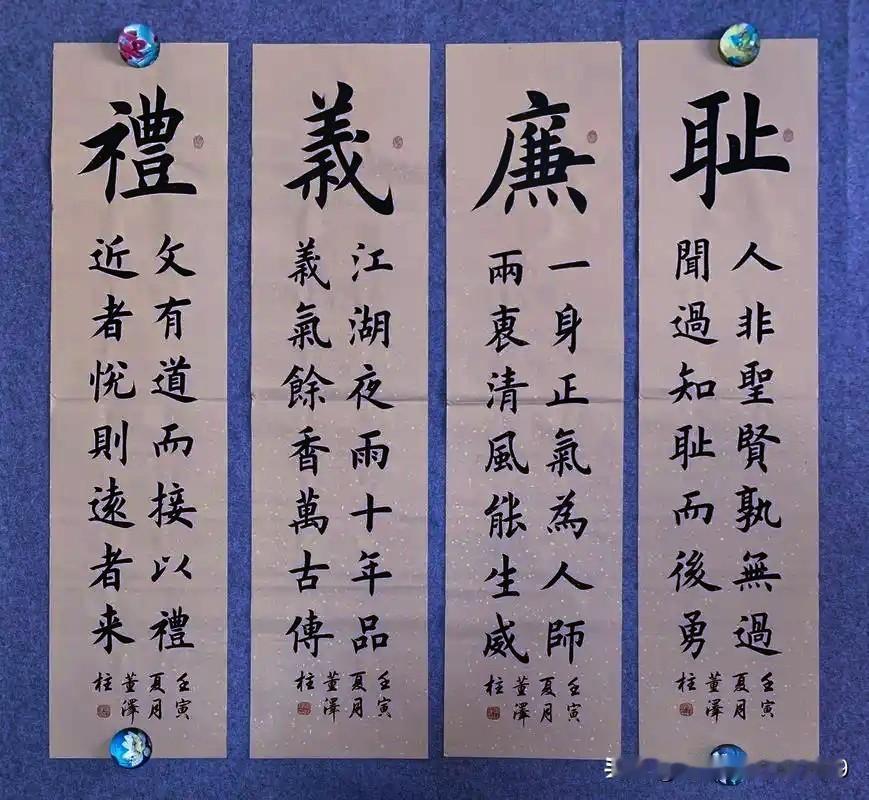 禮
文有道而接以禮
近者悅則遠者来
壬寅
夏月
董澤
柱
義
江湖夜雨十年品
義氣餘香萬古傳
壬寅
夏月
董澤
柱
廉
一身正氣為人師
兩衷清風能生威
壬寅
夏月
董澤
柱
耻
人非聖賢孰無過
聞過知耻而後勇
壬寅
夏月
董澤
柱